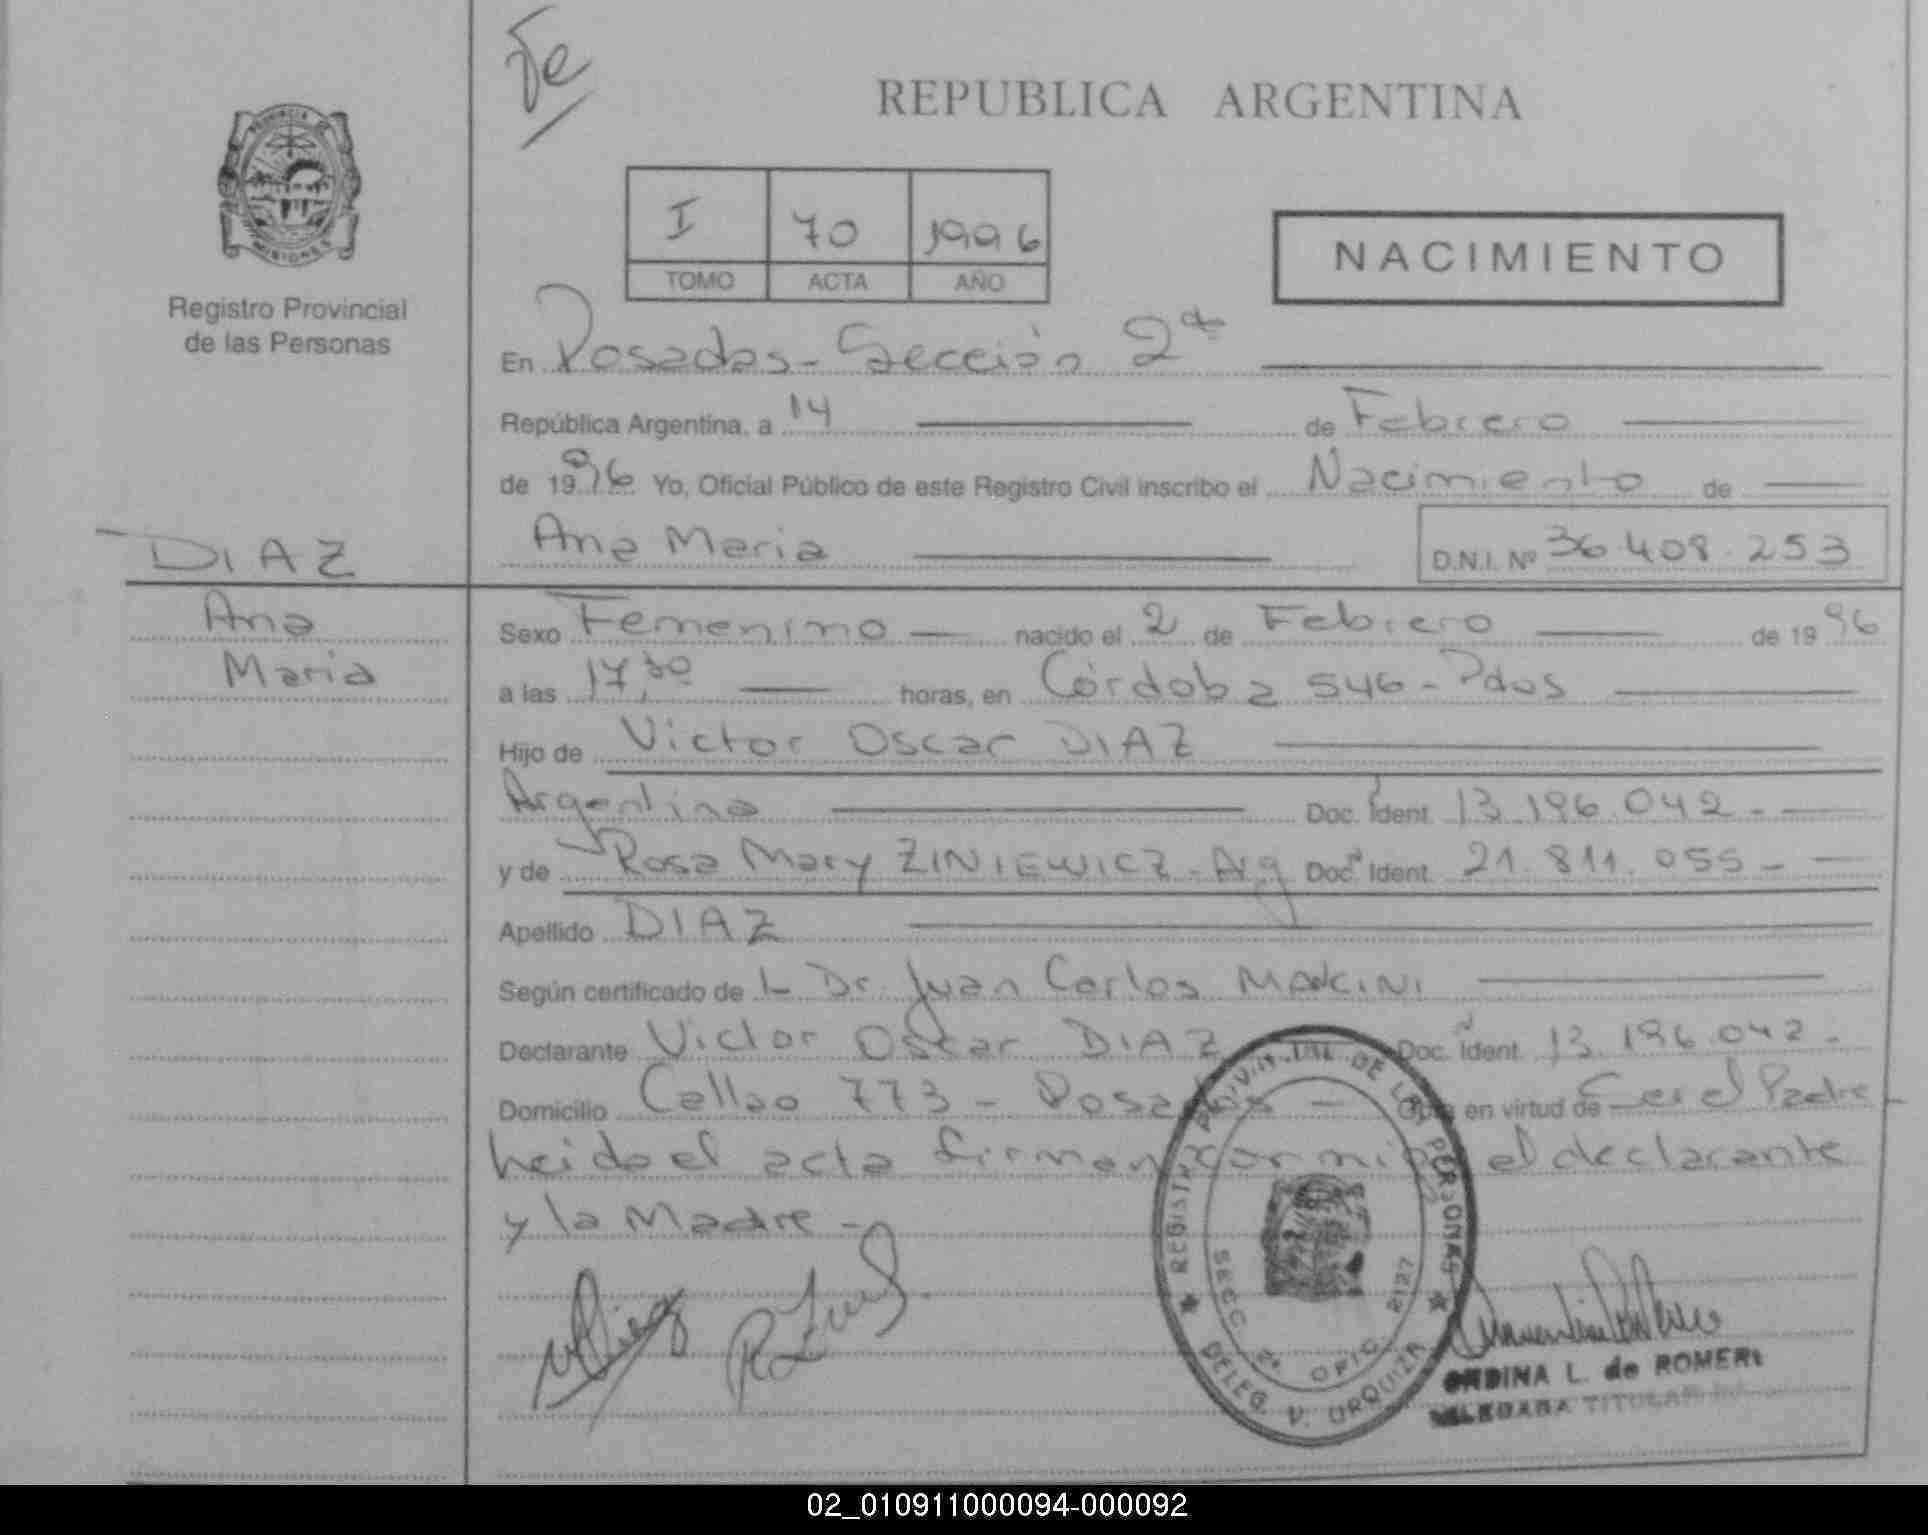 Fe
REPUBLICA ARGENTINA
PROVINCIA DE
MISIONES
I 70 1996
TOMO ACTA AÑO
NACIMIENTO
Registro Provincial
de las Personas
En Posadas - Sección 2da
República Argentina, a 14 de Febrero
de 1996 Yo, Oficial Público de este Registro Civil inscribo el Nacimiento de
Ana Maria D.N.I. Nº 36.408.253
DIAZ
Ana
Maria
Sexo Femenino nacido el 2 de Febrero de 1996
a las 17,30 horas, en Córdoba 546 - Pdas
Hijo de Victor Oscar DIAZ
Argentina Doc. Ident. 13.196.042 -
y de Rosa Mary ZINIEWICZ - Arg Doc. Ident. 21.811.055 -
Apellido DIAZ
Según certificado de L Dr. Juan Carlos MANCINI
Declarante Victor Oscar DIAZ Doc. Ident. 13.196.042 -
Domicilio Callao 773 - Posadas - Obra en virtud de Ser el Padre -
Leida el acta firman por mi el declarante
y la Madre -
REGISTRO PROVINCIAL DE LAS PERSONAS
SECC. 2ª OFIC. 2127
DELEG. V. URQUIZA
L. de ROMERO
TITULAR
02_010911000094-000092